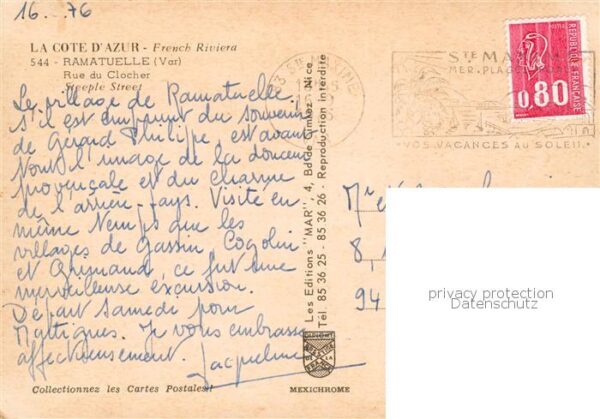 16. 76
LA COTE D'AZUR - French Riviera
544 - RAMATUELLE (Var)
Rue du Clocher
Steeple Street
Le village de Ramatuelle,
s'il est empreint du souvenir
de Gérard Philippe est avant
tout l'image de la douceur
provençale et du charme
de l'arrière-pays. Visité en
même temps que les
villages de Gassin, Cogolin
et Grimaud, ce fut une
merveilleuse excursion.
Départ samedi pour
Martigues. Je vous embrasse
affectueusement. Jacqueline
Collectionnez les Cartes Postales!
Les Editions "MAR", 4, Bd de Cimiez - Nice
Tél. 85 36 25 - 85 36 26 - Reproduction interdite
MEXICHROME
STE MAXIME
MER. PLAGE
VOS VACANCES AU SOLEIL
REPUBLIQUE FRANÇAISE
0,80
Mr et
8,
94
privacy protection
Datenschutz